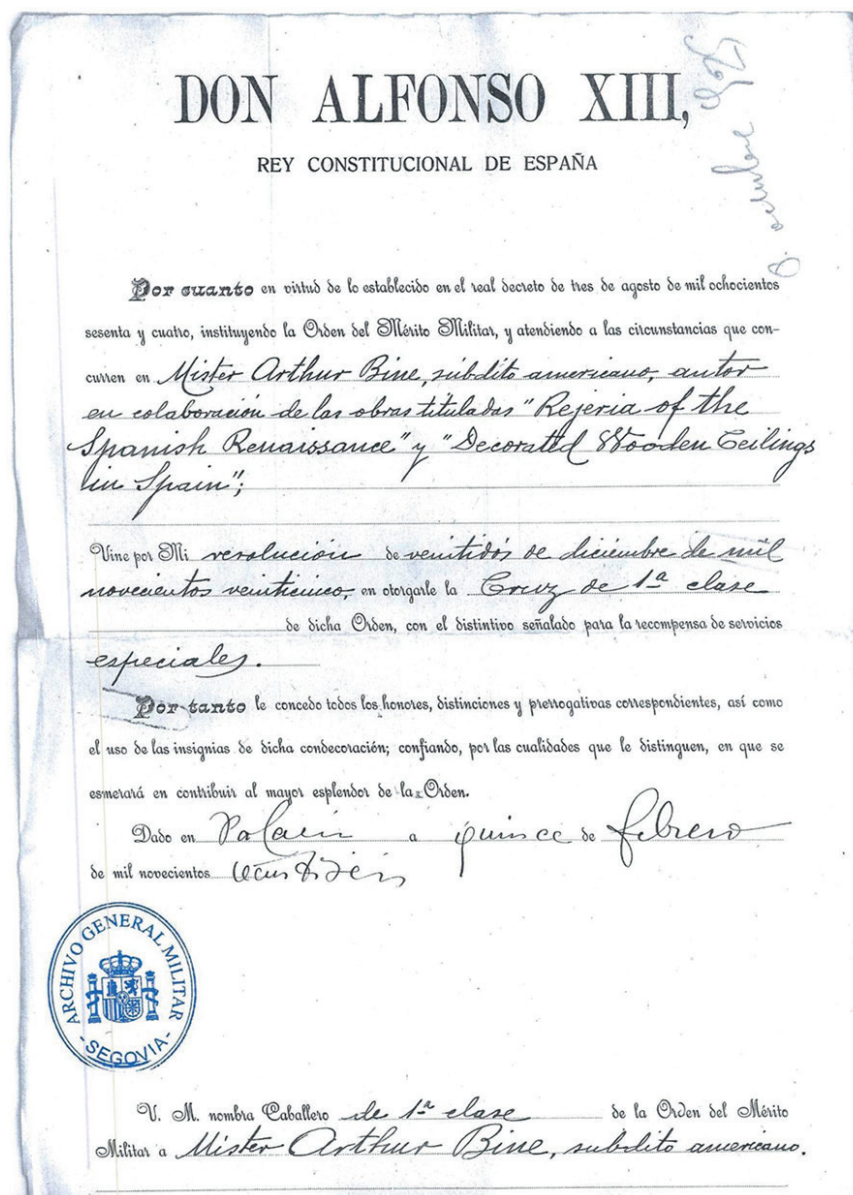 DON ALFONSO XIII,
REY CONSTITUCIONAL DE ESPAÑA
8. octubre 1925
Por cuanto en virtud de lo establecido en el real decreto de tres de agosto de mil ochocientos
sesenta y cuatro, instituyendo la Orden del Mérito Militar, y atendiendo a las circunstancias que con-
curren en Mister Arthur Bine, súbdito americano, autor
en colaboración de las obras tituladas "Rejeria of the
Spanish Renaissance" y "Decorated Wooden Ceilings
in Spain";
Vine por Mi resolución de veintidós de diciembre de mil
novecientos veinticinco, en otorgarle la Cruz de 1ª clase
de dicha Orden, con el distintivo señalado para la recompensa de servicios
especiales.
Por tanto le concedo todos los honores, distinciones y prerrogativas correspondientes, así como
el uso de las insignias de dicha condecoración; confiando, por las cualidades que le distinguen, en que se
esmerará en contribuir al mayor esplendor de la Orden.
Dado en Palacio a quince de febrero
de mil novecientos veintiseis
ARCHIVO GENERAL MILITAR
- SEGOVIA -
V. M. nombra Caballero de 1ª clase de la Orden del Mérito
Militar a Mister Arthur Bine, subdito americano.